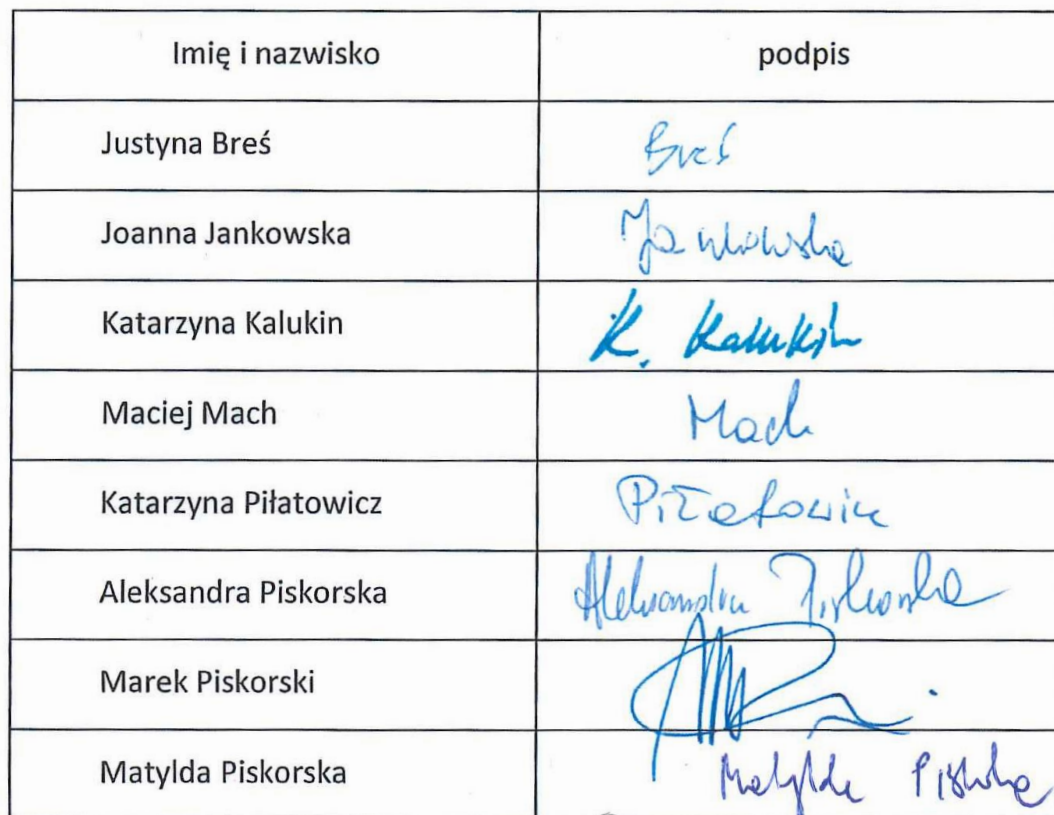 Imię i nazwisko podpis
Justyna Breś Breś
Joanna Jankowska Jankowska
Katarzyna Kalukin K. Kalukin
Maciej Mach Mach
Katarzyna Piłatowicz Piłatowicz
Aleksandra Piskorska Aleksandra Piskorska
Marek Piskorski
Matylda Piskorska Matylda